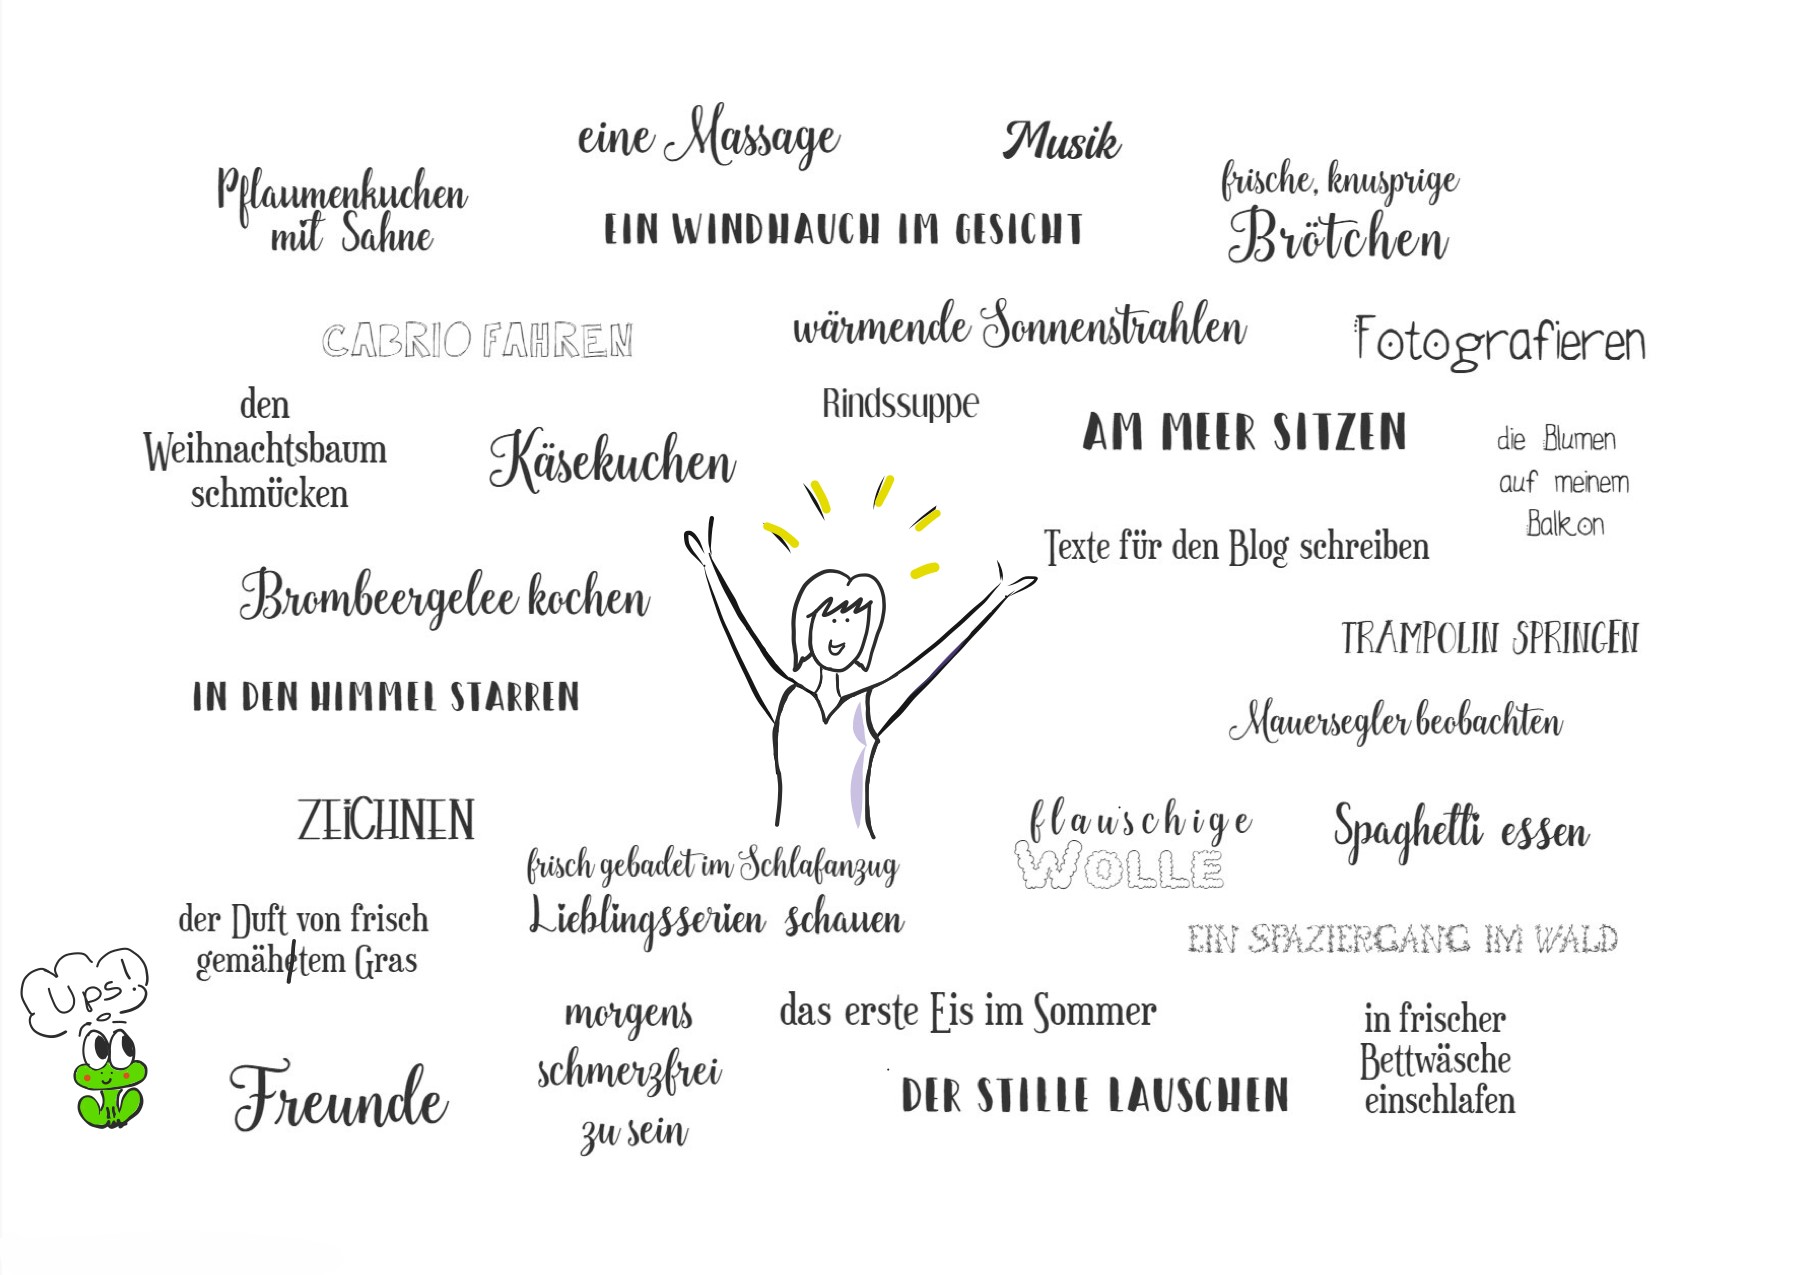 eine Massage
Musik
Pflaumenkuchen
mit Sahne
EIN WINDHAUCH IM GESICHT
frische, knusprige
Brötchen
CABRIO FAHREN
wärmende Sonnenstrahlen
Fotografieren
den
Weihnachtsbaum
schmücken
Käsekuchen
Rindssuppe
AM MEER SITZEN
die Blumen
auf meinem
Balkon
Texte für den Blog schreiben
Brombeergelee kochen
TRAMPOLIN SPRINGEN
IN DEN HIMMEL STARREN
Mauersegler beobachten
ZEICHNEN
flauschige
WOLLE
Spaghetti essen
frisch gebadet im Schlafanzug
Lieblingsserien schauen
der Duft von frisch
gemähetem Gras
EIN SPAZIERGANG IM WALD
Ups!
morgens
schmerzfrei
zu sein
das erste Eis im Sommer
in frischer
Bettwäsche
einschlafen
Freunde
DER STILLE LAUSCHEN